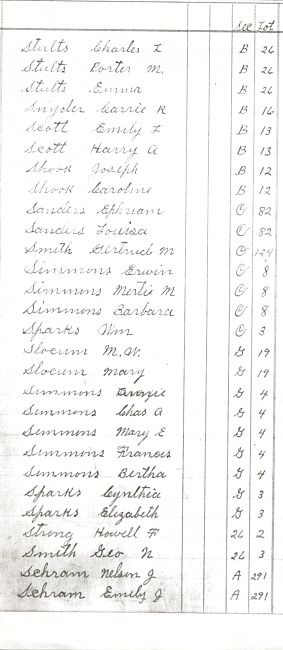 Sec Lot
Stults Charles L B 26
Stults Porter M. B 26
Stults Emma B 26
Snyder Carrie R B 16
Scott Emily L B 13
Scott Harry A B 13
Shook Joseph B 12
Shook Caroline B 12
Sanders Ephriam C 82
Sanders Louisa C 82
Smith Gertrud M C 124
Simmons Erwin C 8
Simmons Mertie M C 8
Simmons Barbara C 8
Sparks Wm C 3
Slocum M. W. G 19
Slocum Mary G 19
Simmons G 4
Simmons Chas A G 4
Simmons Mary E G 4
Simmons Frances G 4
Simmons Bertha G 4
Sparks Cynthia G 3
Sparks Elizabeth G 3
Strong Howell F 26 2
Smith Geo N 26 3
Schram Nelson J A 291
Schram Emily J A 291